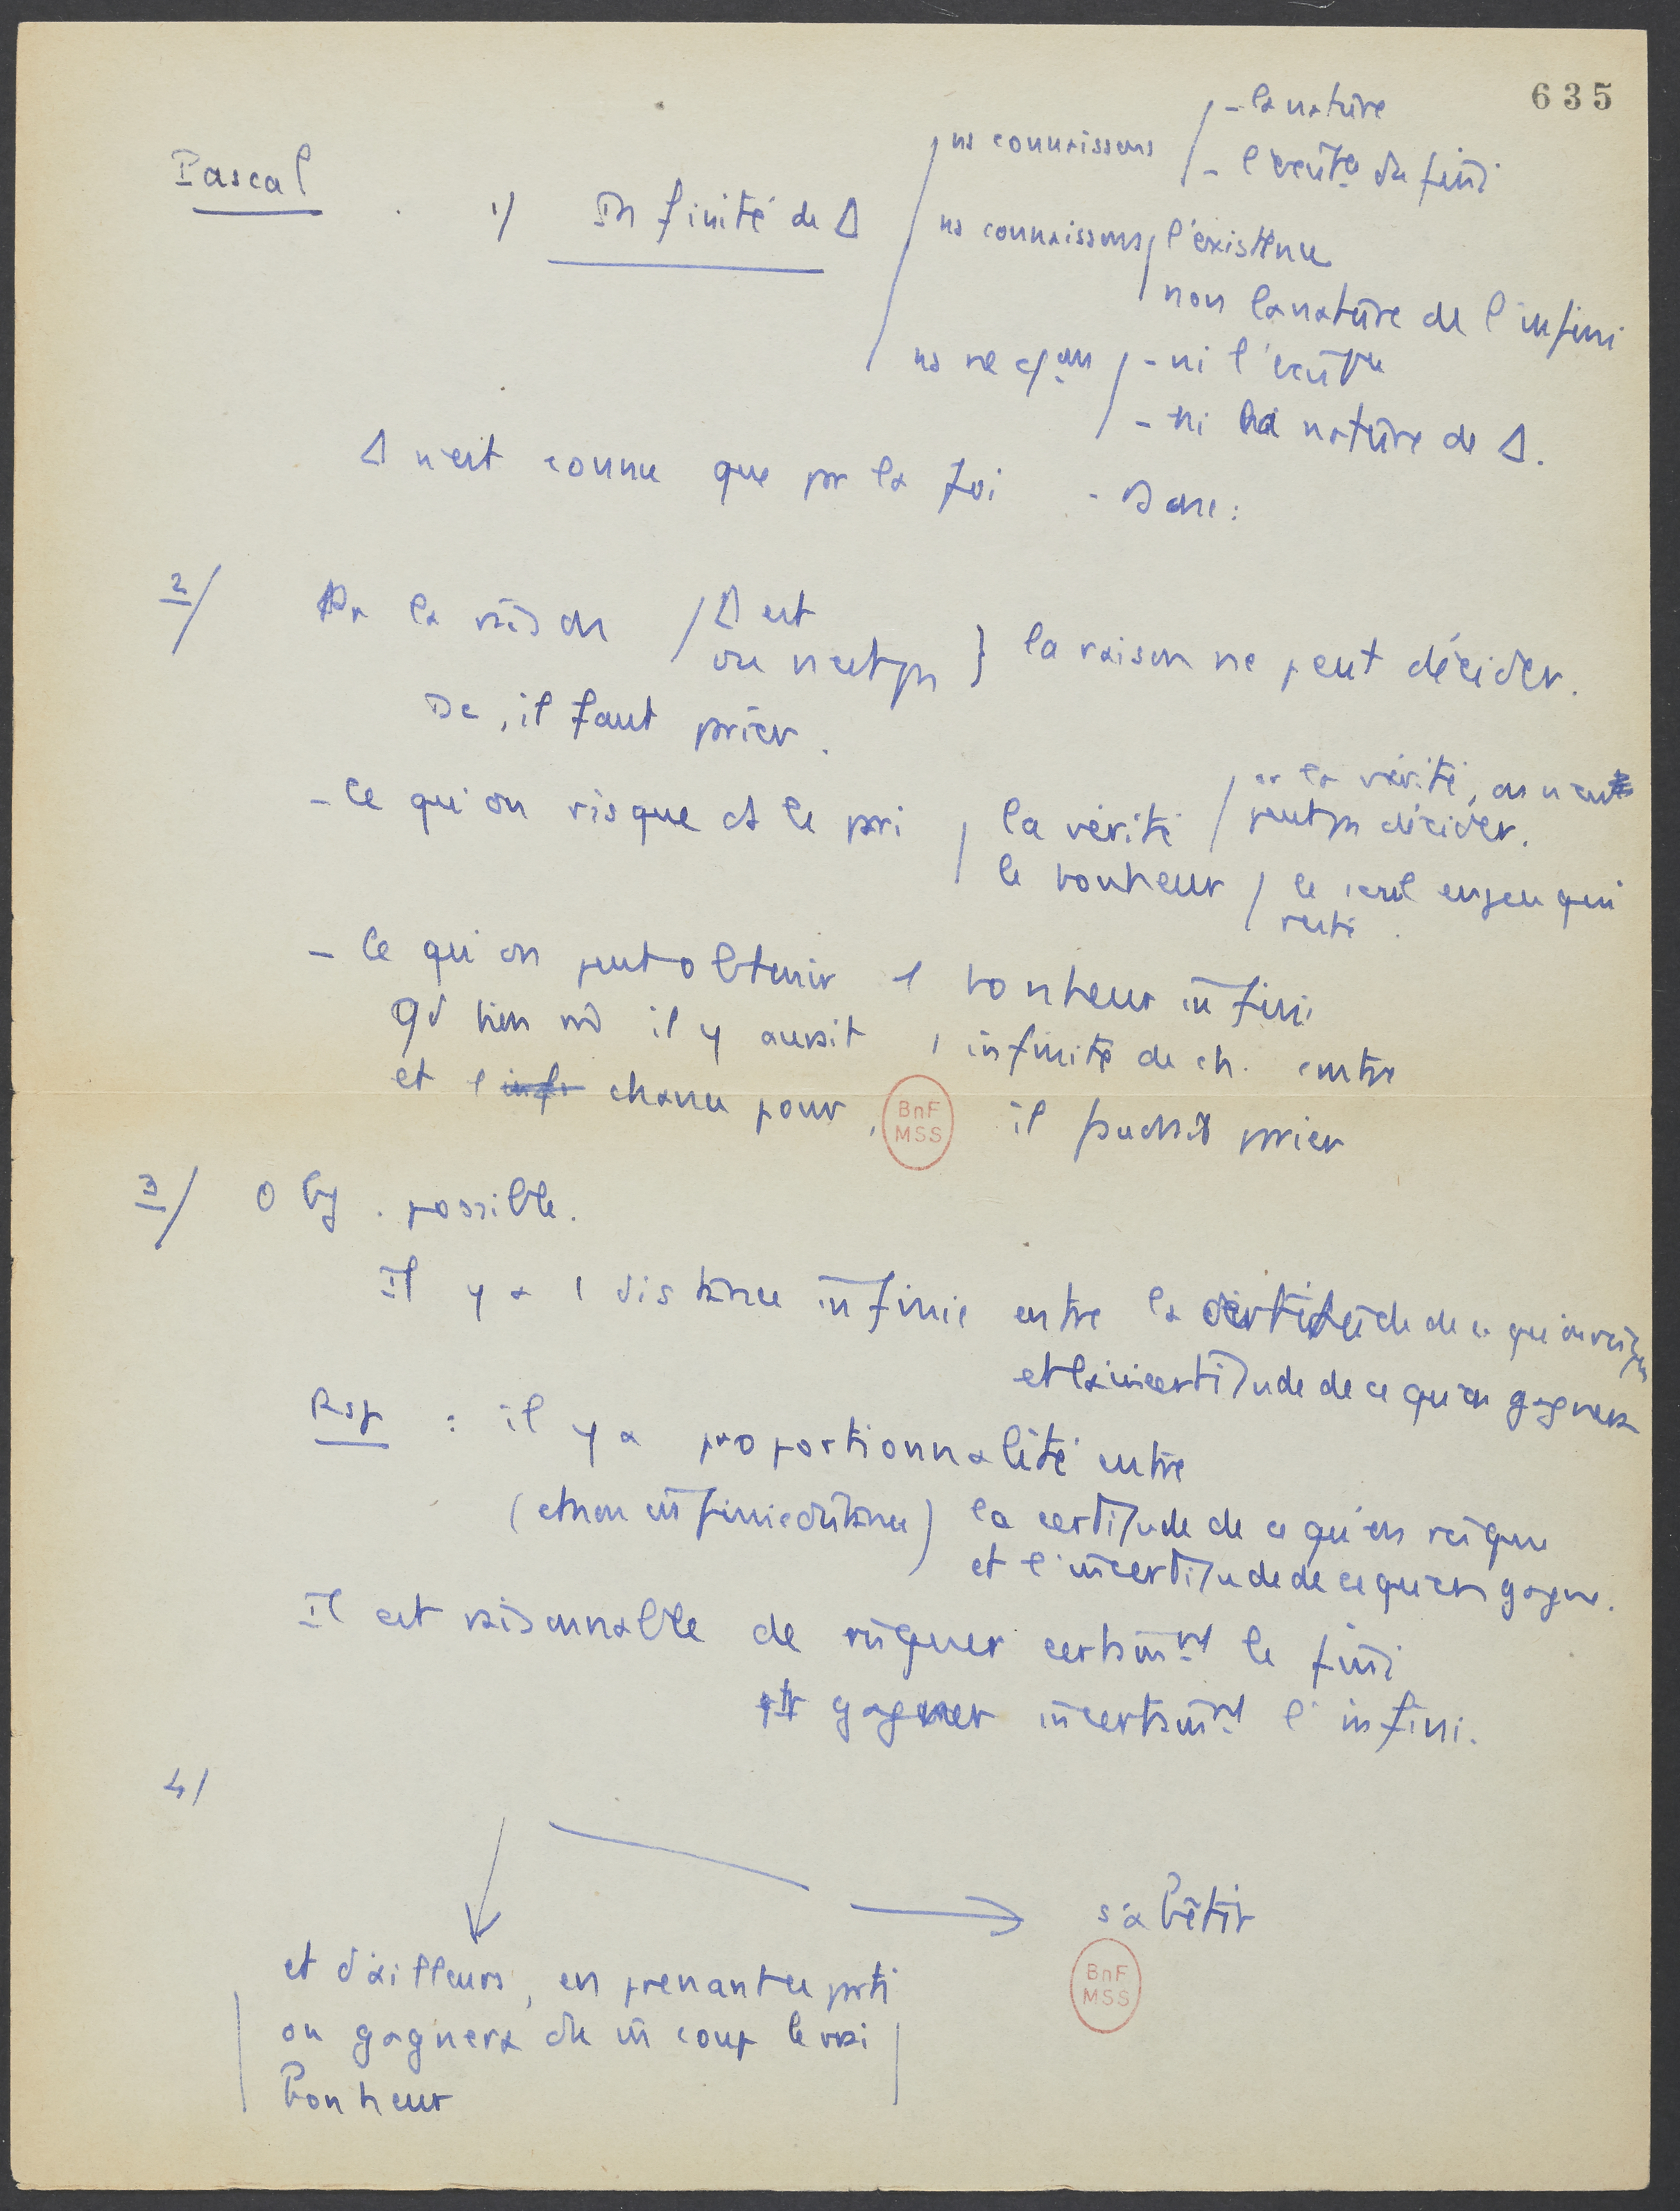 635
Pascal
1/ Infinité de Δ
ns connaissons / - la nature
- l'existce du fini
ns connaissons / l'existence
non la nature de l'infini
ns ne c/ons / - ni l'existence
- ni la nature de Δ.
Δ n'est connu que pr la foi - Donc :
2/ Pr la raison / Δ est
ou n'est ps } la raison ne peut décider.
Dc, il faut parier.
- Ce qu'on risque ds le pari / la vérité / or la vérité, on n'en
peut ps décider.
le bonheur / le seul enjeu qui
reste.
- Ce qu'on peut obtenir 1 bonheur infini
Qd bien m̂ il y aurait 1 infinité de ch. contre
et 1 chance pour, il faudrait parier
BnF
MSS
3/ Obj. possible.
Il y a 1 distance infinie entre la certitude de ce qu'on risque
et la incertitude de ce qu'on gagnera
Rsp : il y a proportionnalité entre
(et non infinie distance) la certitude de ce qu'on risque
et l'incertitude de ce qu'on gagne.
Il est raisonnable de risquer certainmt le fini
pr gagner incertainmt l'infini.
4/
s'abêtir
BnF
MSS
et d'ailleurs, en prenant ce parti
on gagnera du m̂ coup le vrai
bonheur